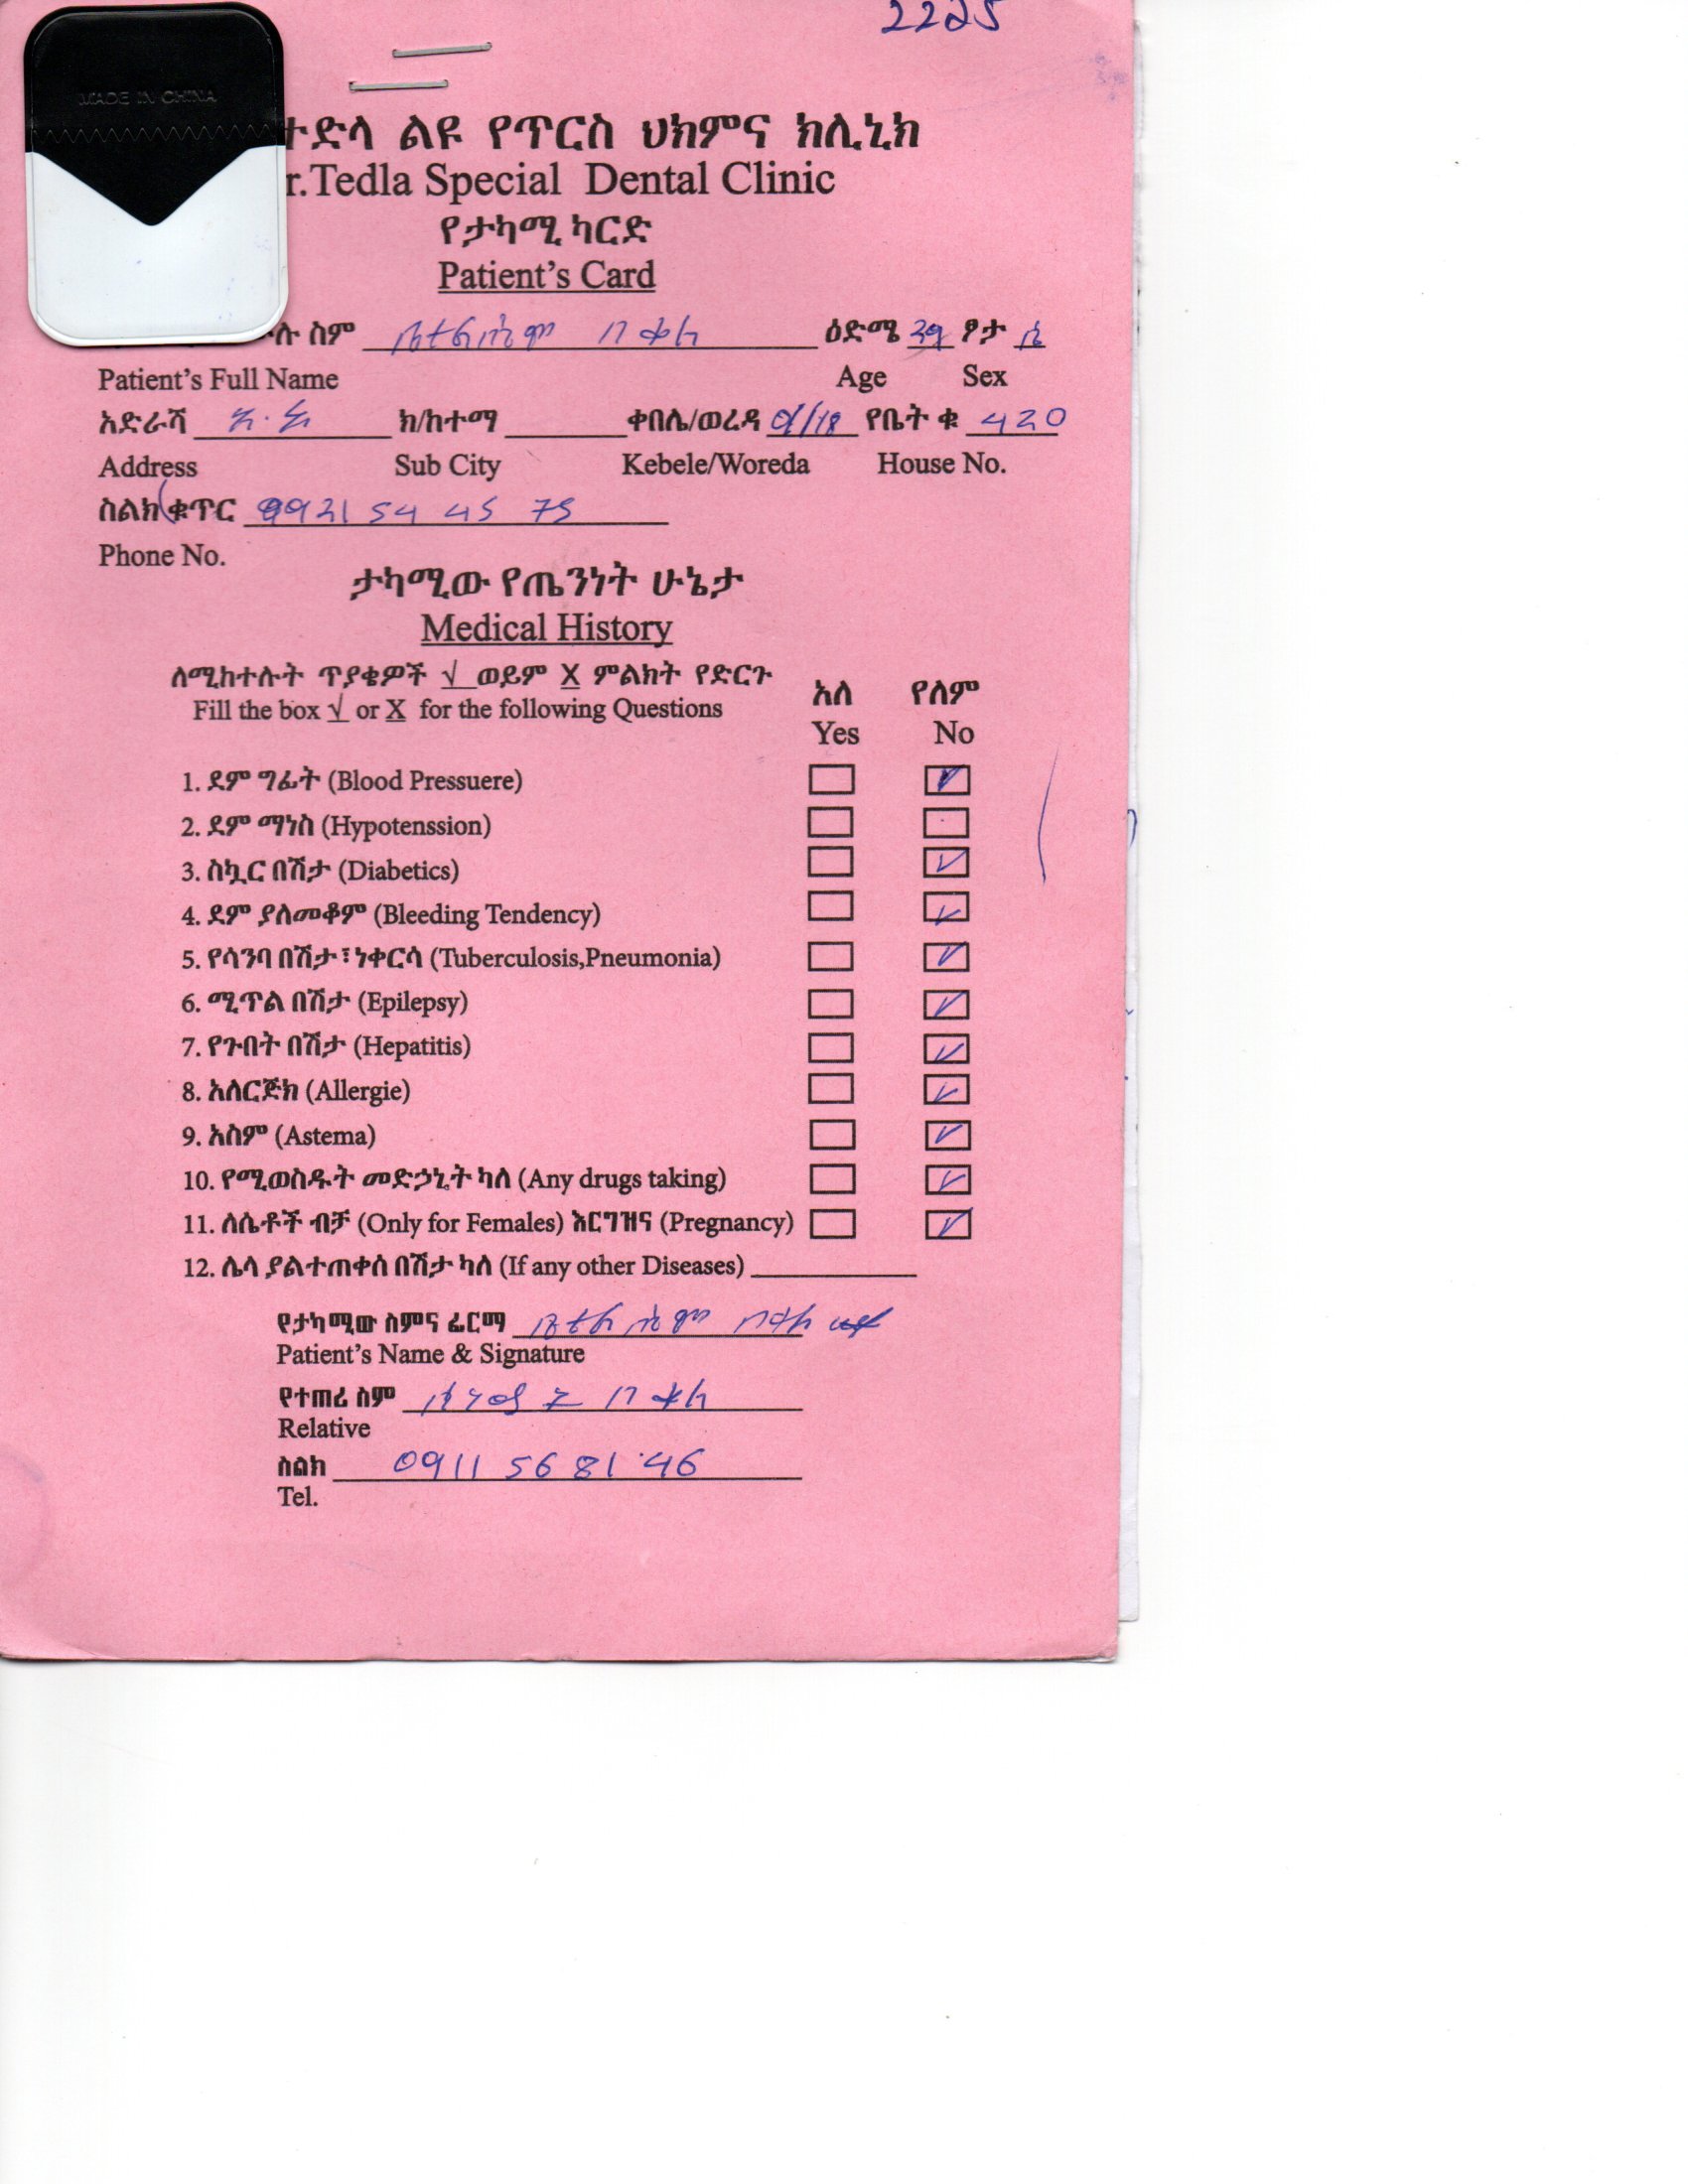 2225
MADE IN CHINA
ተድላ ልዩ የጥርስ ህክምና ክሊኒክ
r.Tedla Special Dental Clinic
የታካሚ ካርድ
Patient's Card
ሉ ስም ቤተልሔም በቀለ ዕድሜ ፆታ ሴ
Patient's Full Name Age Sex
አድራሻ አ.አ ክ/ከተማ ቀበሌ/ወረዳ የቤት ቁ 420
Address Sub City Kebele/Woreda House No.
ስልክ ቁጥር 0921 54 45 75
Phone No.
ታካሚው የጤንነት ሁኔታ
Medical History
ለሚከተሉት ጥያቄዎች √ ወይም X ምልክት የድርጉ
Fill the box √ or X for the following Questions
አለ የለም
Yes No
1. ደም ግፊት (Blood Pressuere)
2. ደም ማነስ (Hypotenssion)
3. ስኳር በሽታ (Diabetics)
4. ደም ያለመቆም (Bleeding Tendency)
5. የሳንባ በሽታ፣ነቀርሳ (Tuberculosis,Pneumonia)
6. ሚጥል በሽታ (Epilepsy)
7. የጉበት በሽታ (Hepatitis)
8. አለርጅክ (Allergie)
9. አስም (Astema)
10. የሚወስዱት መድኃኒት ካለ (Any drugs taking)
11. ለሴቶች ብቻ (Only for Females) እርግዝና (Pregnancy)
12. ሌላ ያልተጠቀሰ በሽታ ካለ (If any other Diseases)
የታካሚው ስምና ፊርማ ቤተልሔም በቀለ
Patient's Name & Signature
የተጠሪ ስም በቀለ
Relative
ስልክ 0911 56 81 46
Tel.